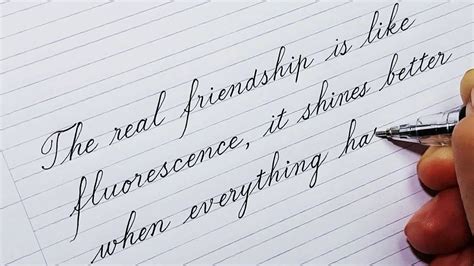 The real friendship is like
fluorescence, it shines better
when everything ha